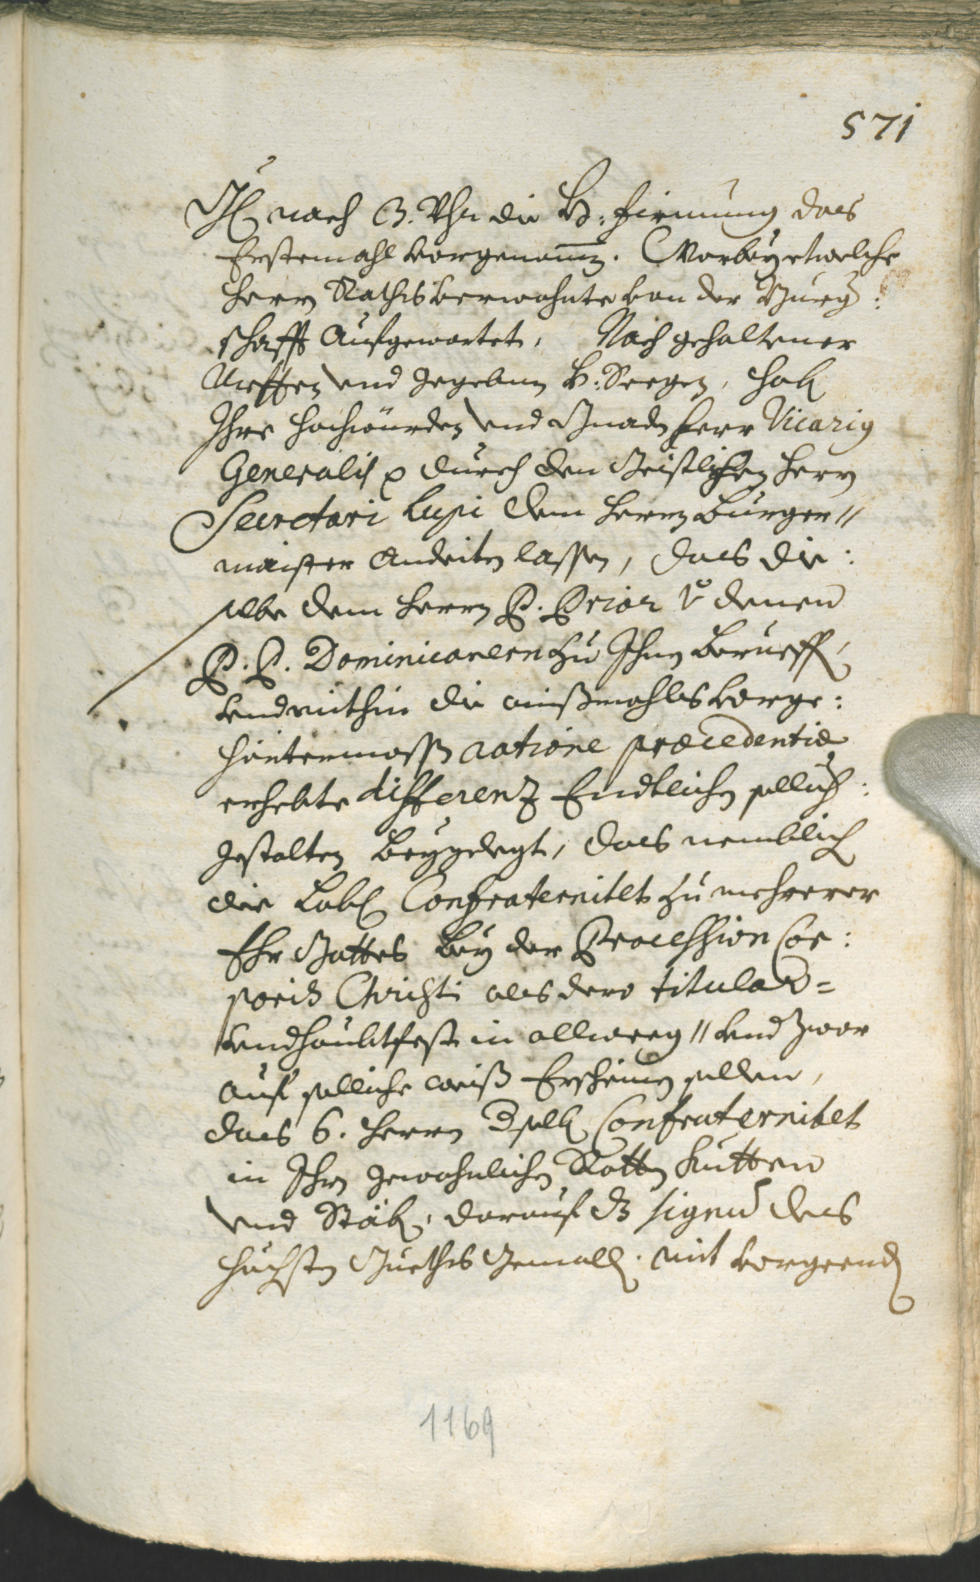 571
nach 3. Uhr die H: Firmung das
Erstemahl vorgenommen. Worbey etwelche
Herrn Raths verwohnte von der Burg:
schafft Aufgewartet. Nach gehaltener
und gegebnen H: Seegen, hab
Ihre Hochwürden und Gnaden Herr Vicarius
Generalis durch den Geistlichen Herrn
Secretari Lupi dem Herrn Burger //
maister Andeiten lassen, das die:
selbe dem Herrn P. Prior denen
P. P. Dominicanern zu Ihnen Berueff,
und mithin die
ratione præcedentiæ
erhebte differenz Endtlichen sollich:
gestalten Beygelegt, das nemblich
die Lobl Confraternitet zu mehrerer
Ehr Gottes Bey der Procession Cor:
poris Christi als dero titular=
und haubtfest in allweeg // und zwar
auf solliche weiß Erscheinen sollen,
das 6. Herrn Confraternitet
in Ihren gewohnlichen Rotten Kutten
und Stäb, darauf dz signum des
höchsten Gueths mit vorgeend
1169